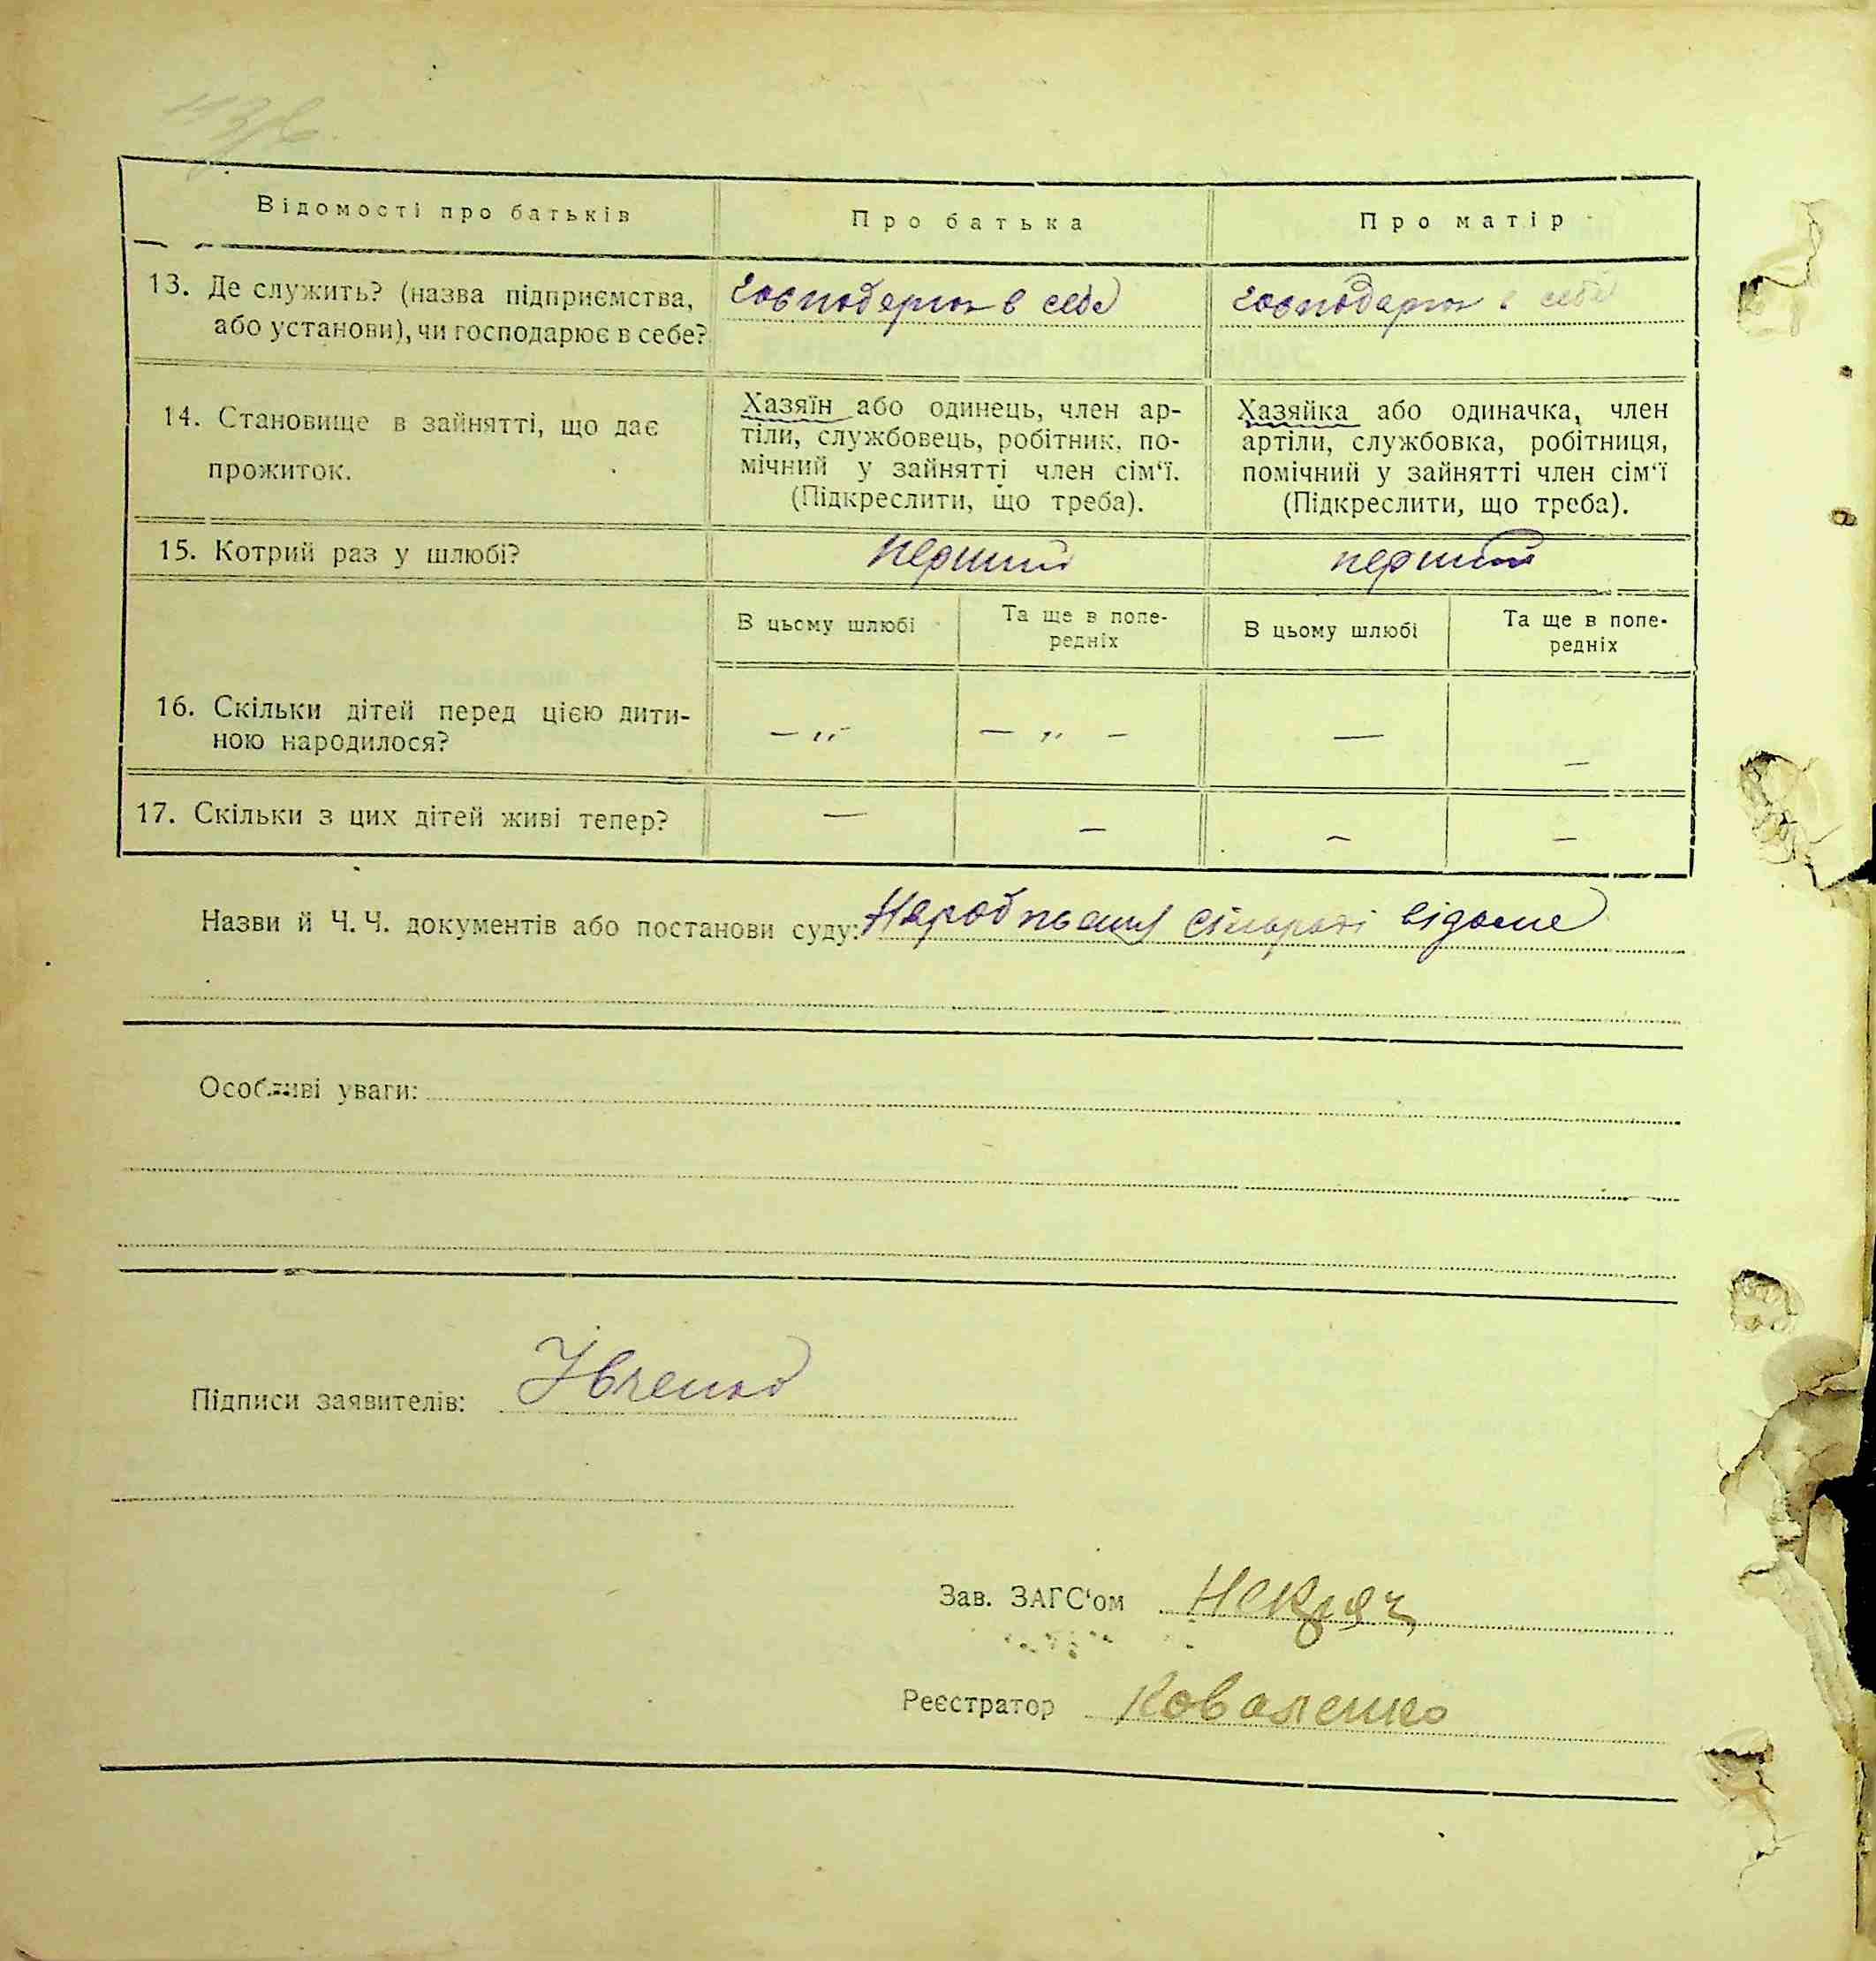 Відомості про батьків
Про батька
Про матір
13. Де служить? (назва підприємства,
або установи), чи господарює в себе?
господарює в себе
господарює в себе
14. Становище в зайнятті, що дає
прожиток.
Хазяїн або одинець, член ар-
тіли, службовець, робітник, по-
мічний у зайнятті член сім‘ї.
(Підкреслити, що треба).
Хазяйка або одиначка, член
артіли, службовка, робітниця,
помічний у зайнятті член сім‘ї
(Підкреслити, що треба).
15. Котрий раз у шлюбі?
перший
перший
В цьому шлюбі
Та ще в попе-
редніх
В цьому шлюбі
Та ще в попе-
редніх
16. Скільки дітей перед цією дити-
ною народилося?
— „
— „ —
—
—
17. Скільки з цих дітей живі тепер?
—
—
—
—
Назви й Ч. Ч. документів або постанови суду: сільраді відоме
Особливі уваги:
Підписи заявителів: Івченко
Зав. ЗАГС‘ом Некряч
Реєстратор Коваленко